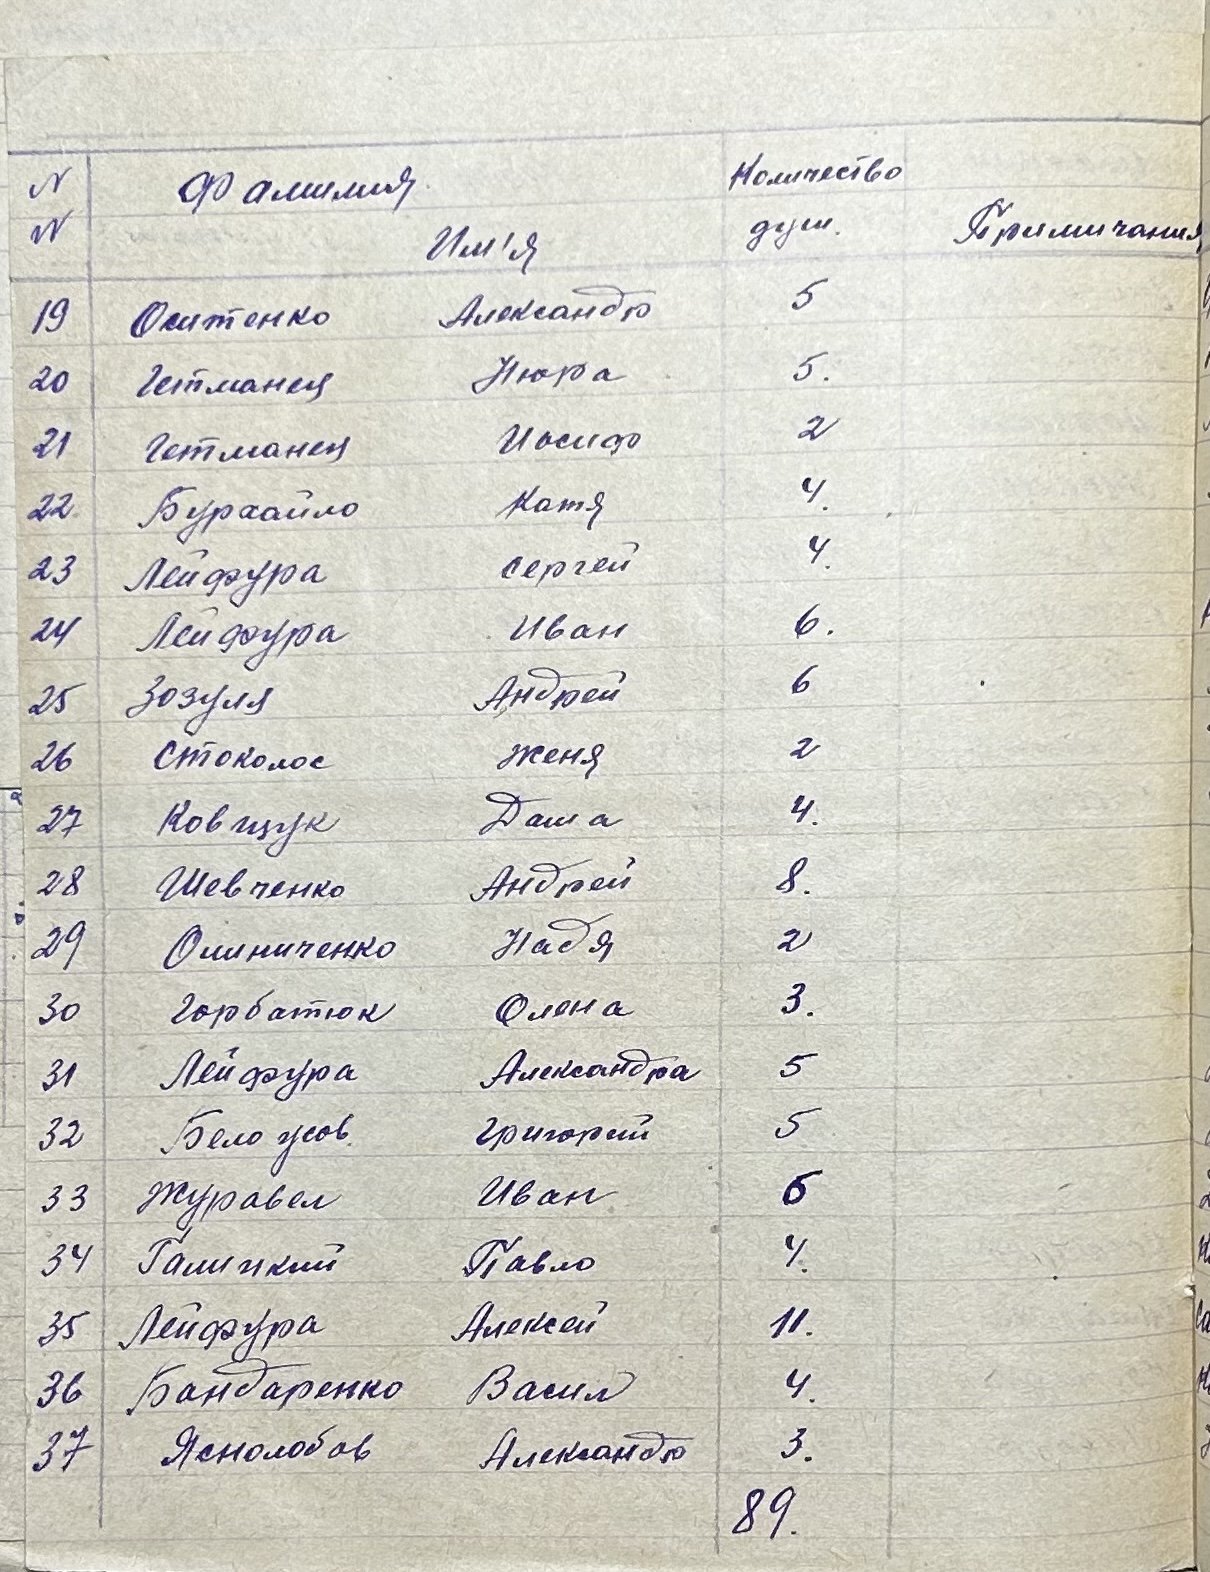 N Фамилия Количество
N Им'я душ. Примичания
19 Оситенко Александр 5
20 Гетманец Нюра 5.
21 Гетманец Иосиф 2
22 Бурхайло Катя 4.
23 Лейфура Сергей 4.
24 Лейфура Иван 6.
25 Зозуля Андрей 6
26 Стоколос Женя 2
27 Ковщук Даша 4.
28 Шевченко Андрей 8.
29 Олиниченко Надя 2
30 Горбатюк Олена 3.
31 Лейфура Александра 5
32 Белоусов Григорий 5
33 Журавел Иван 6
34 Галицкий Павло 4.
35 Лейфура Алексей 11.
36 Бандаренко Васил 4.
37 Яснолобов Александр 3.
89.